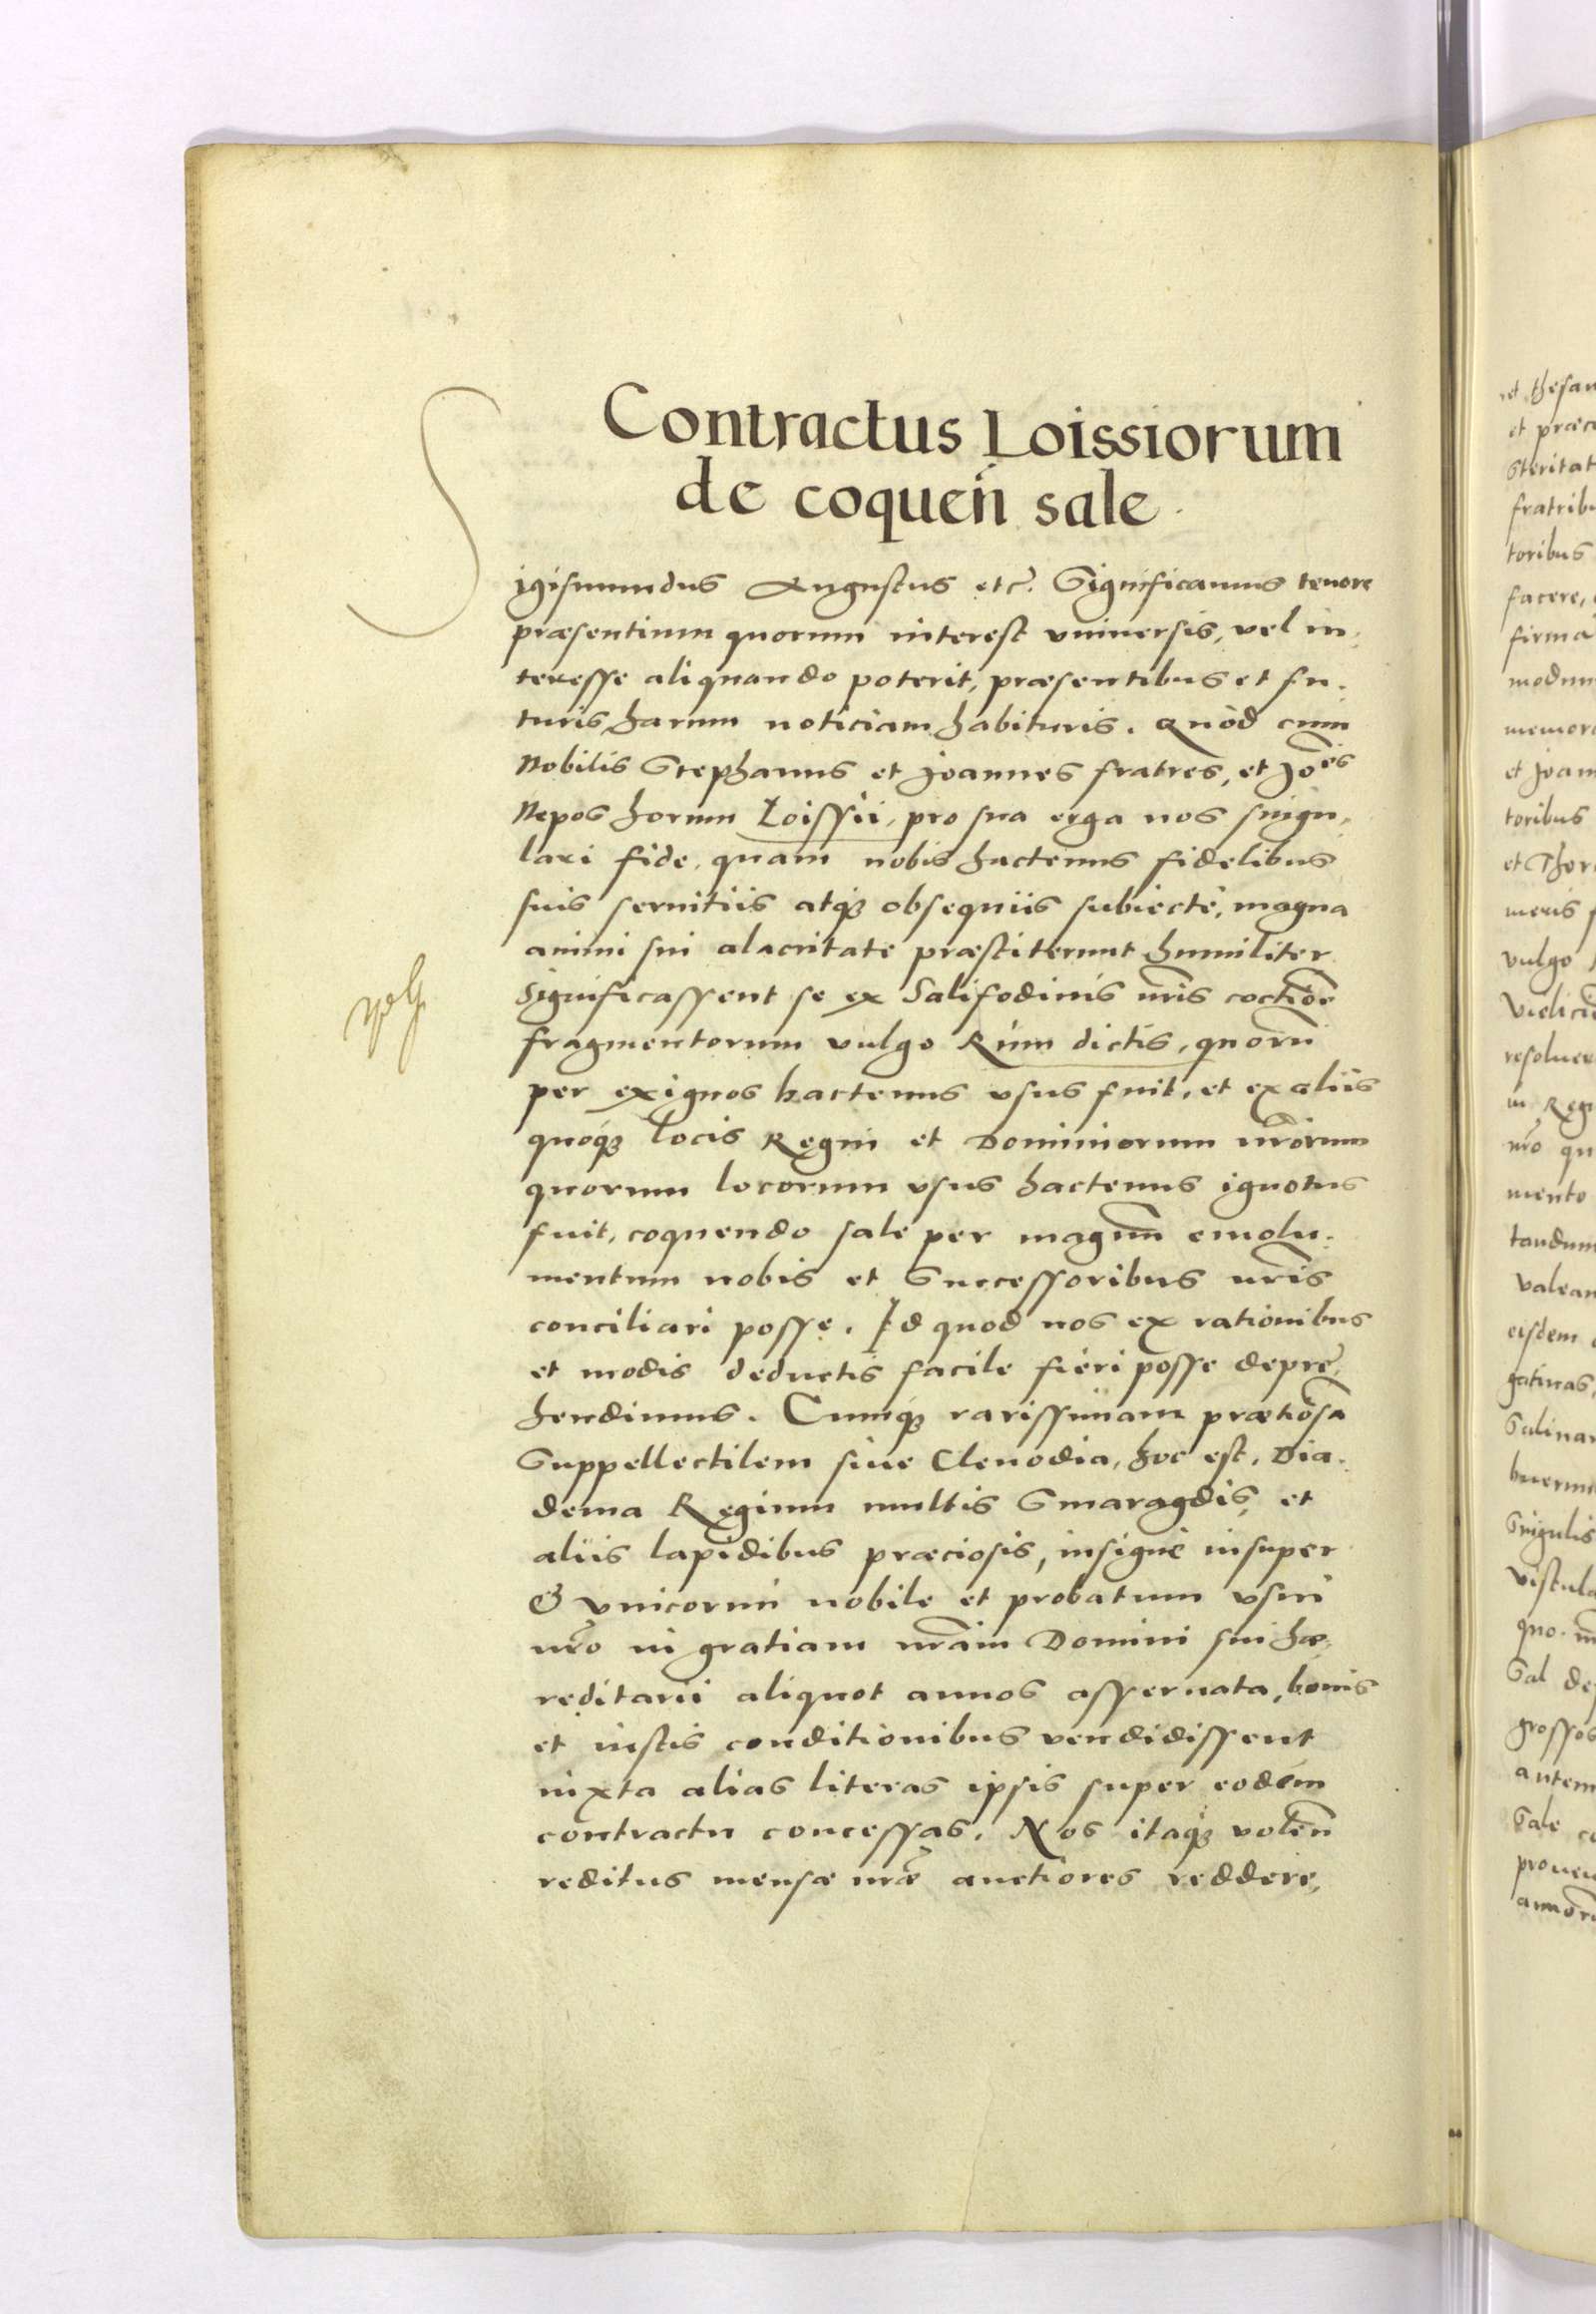 Contractus Loissiorum
de coquen̄ sale.
Sigismundus Augustus etc̃. Significamus tenore
præsentium quorum interest vniuersis, vel in,
teresse aliquando poterit, præsentibus et fu,
turis harum noticiam habituris. Quòd cum
Nobilis Stephanus et Joannes fratres, et Joes
Nepos horum Loissii, pro sua erga nos singu,
lari fide, quam nobis hactenus fidelibus
suis seruitiis atq3 obsequiis subiectè, magna
animi sui alacritate præstiterunt humiliter
Significassent se ex Salifodinis nr̃is coctiõe
fragmentorum vulgo Rum dictis, quorũ
per exiguos hactenus vsus fuit, et ex aliis
quoq3 locis Regni et Dominiorum nr̃orum
quorum locorum vsus hactenus ignotus
fuit, coquendo sale per magnũ emolu,
mentum nobis et Successoribus nr̃is
conciliari posse. Id quod nos ex rationibus
et modis deductis facile fieri posse depre,
hendimus. Cumq3 rarissimam prætiosã
Suppellectilem siue Clenodia, hoc est, Dia,
dema Regium multis Smaragdis, et
aliis lapidibus præciosis, insigne insuper
& vnicornu nobile et probatum vsui
nr̃o in gratiam nr̃am Domini sui hæ,
reditarii aliquot annos asseruata, bonis
et iustis conditionibus vendidissent
iuxta alias literas ipsis super eodem
contractu concessas. Nos itaq3 volen̄
reditus mensæ nr̃æ auctiores reddere,
et thesau
et præca
steritat
fratribu
toribus
facere,
firma
modum
memora
et Joan
toribus
et Thor
meris
vulgo
Vielicie
resoluer
in Regn
nr̃o qu
mento
tandum
valean
eisdem
gatiuas,
Salinar
buerunt
Singulis
Vistula
quo.
Sal de
grossos
autem
Sale co
proueu
annoru